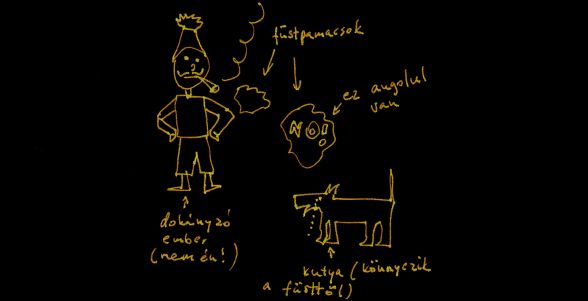 füstpamacsok
ez angolul
van
NO!
dohányzó
ember
(nem én!)
kutya (könnyezik
a füsttől)